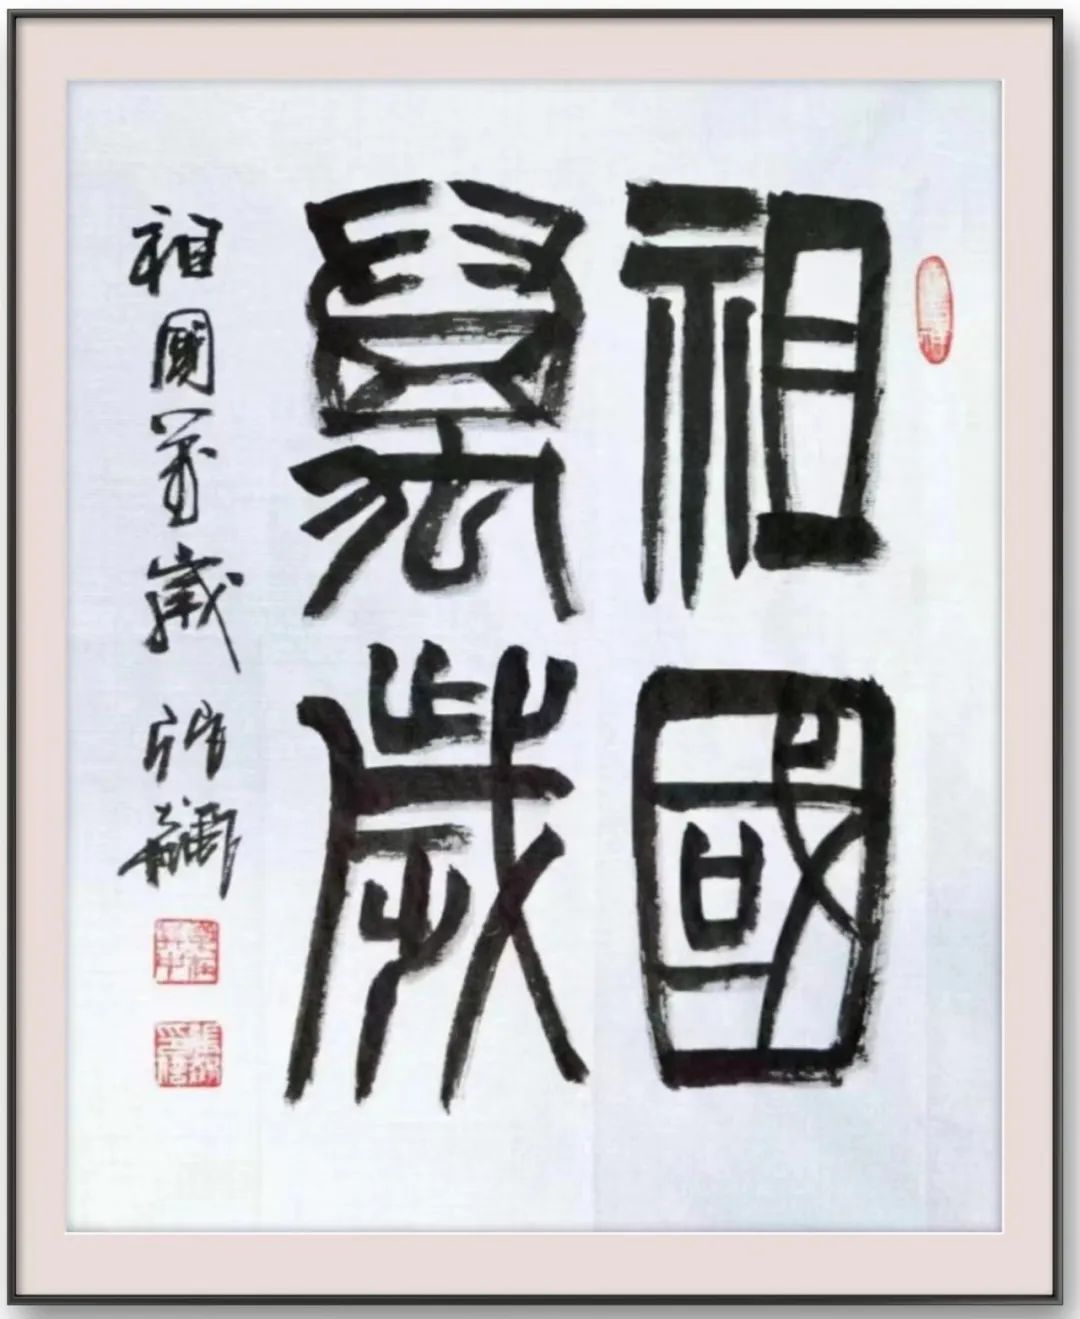 祖國
萬歲
祖國萬歲